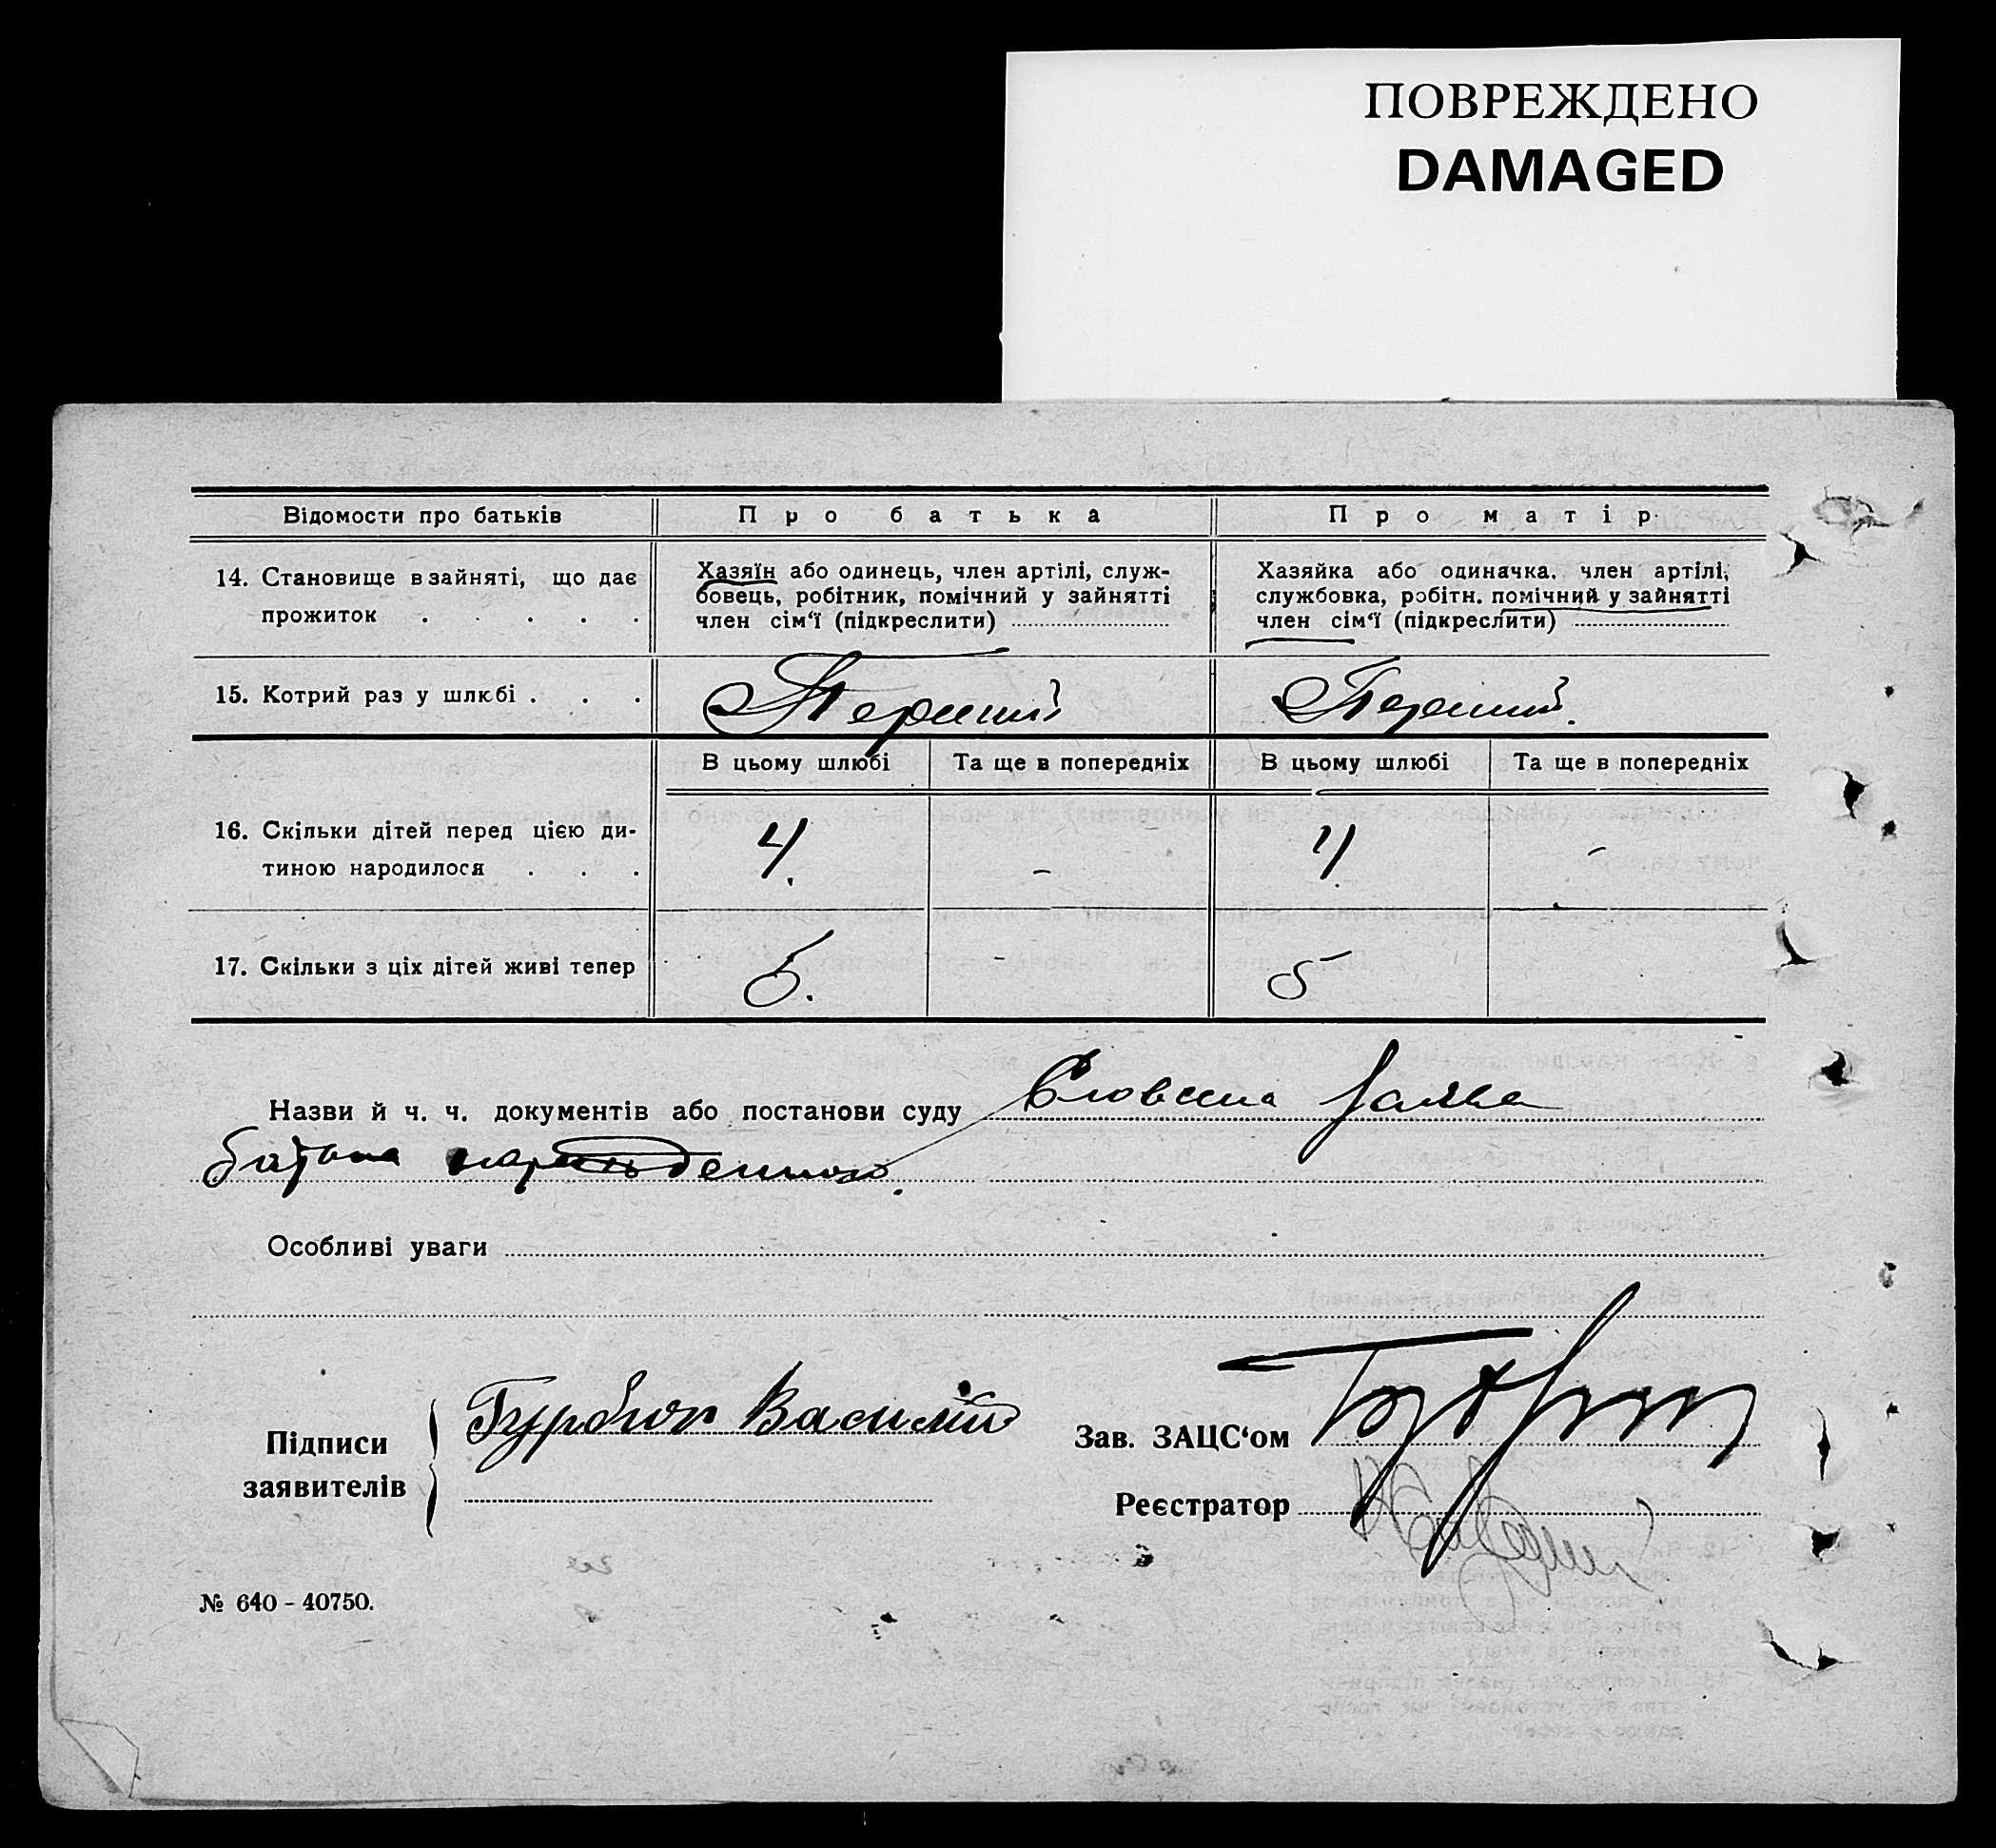 ПОВРЕЖДЕНО
DAMAGED
Відомости про батьків
Про батька
Про матір
14. Становище в зайняті, що дає
прожиток . . . . .
Хазяїн або одинець, член артілі, служ-
бовець, робітник, помічний у зайнятті
член сім‘ї (підкреслити)
Хазяйка або одиначка, член артілі,
службовка, робітн. помічний у зайнятті
член сім‘ї (підкреслити)
15. Котрий раз у шлюбі . . .
Перший
Перший.
В цьому шлюбі
Та ще в попередніх
В цьому шлюбі
Та ще в попередніх
16. Скільки дітей перед цією ди-
тиною народилося . . .
4.
-
4
-
17. Скільки з ціх дітей живі тепер
5.
-
5
Назви й ч. ч. документів або постанови суду Словесна заява
батька
Особливі уваги
Підписи
заявителів
Василій
Зав. ЗАЦС‘ом
Реєстратор
№ 640 - 40750.